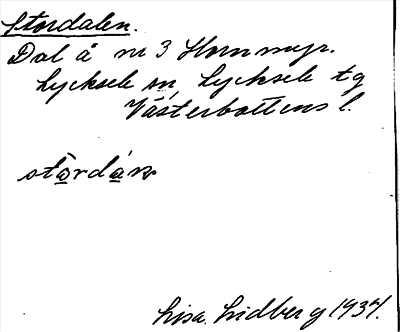 Stordalen.
Dal å nr 3 Hornmyr.
Lycksele sn, Lycksele tg
Västerbottens l.
Lisa Lidberg 1937.